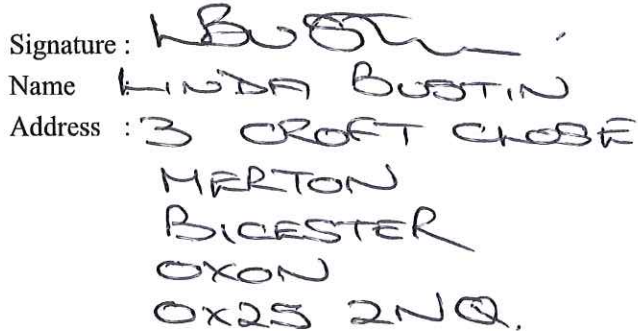 Signature : LBustin
Name : LINDA BUSTIN
Address : 3 CROFT CLOSE
MERTON
BICESTER
OXON
OX25 2NQ.